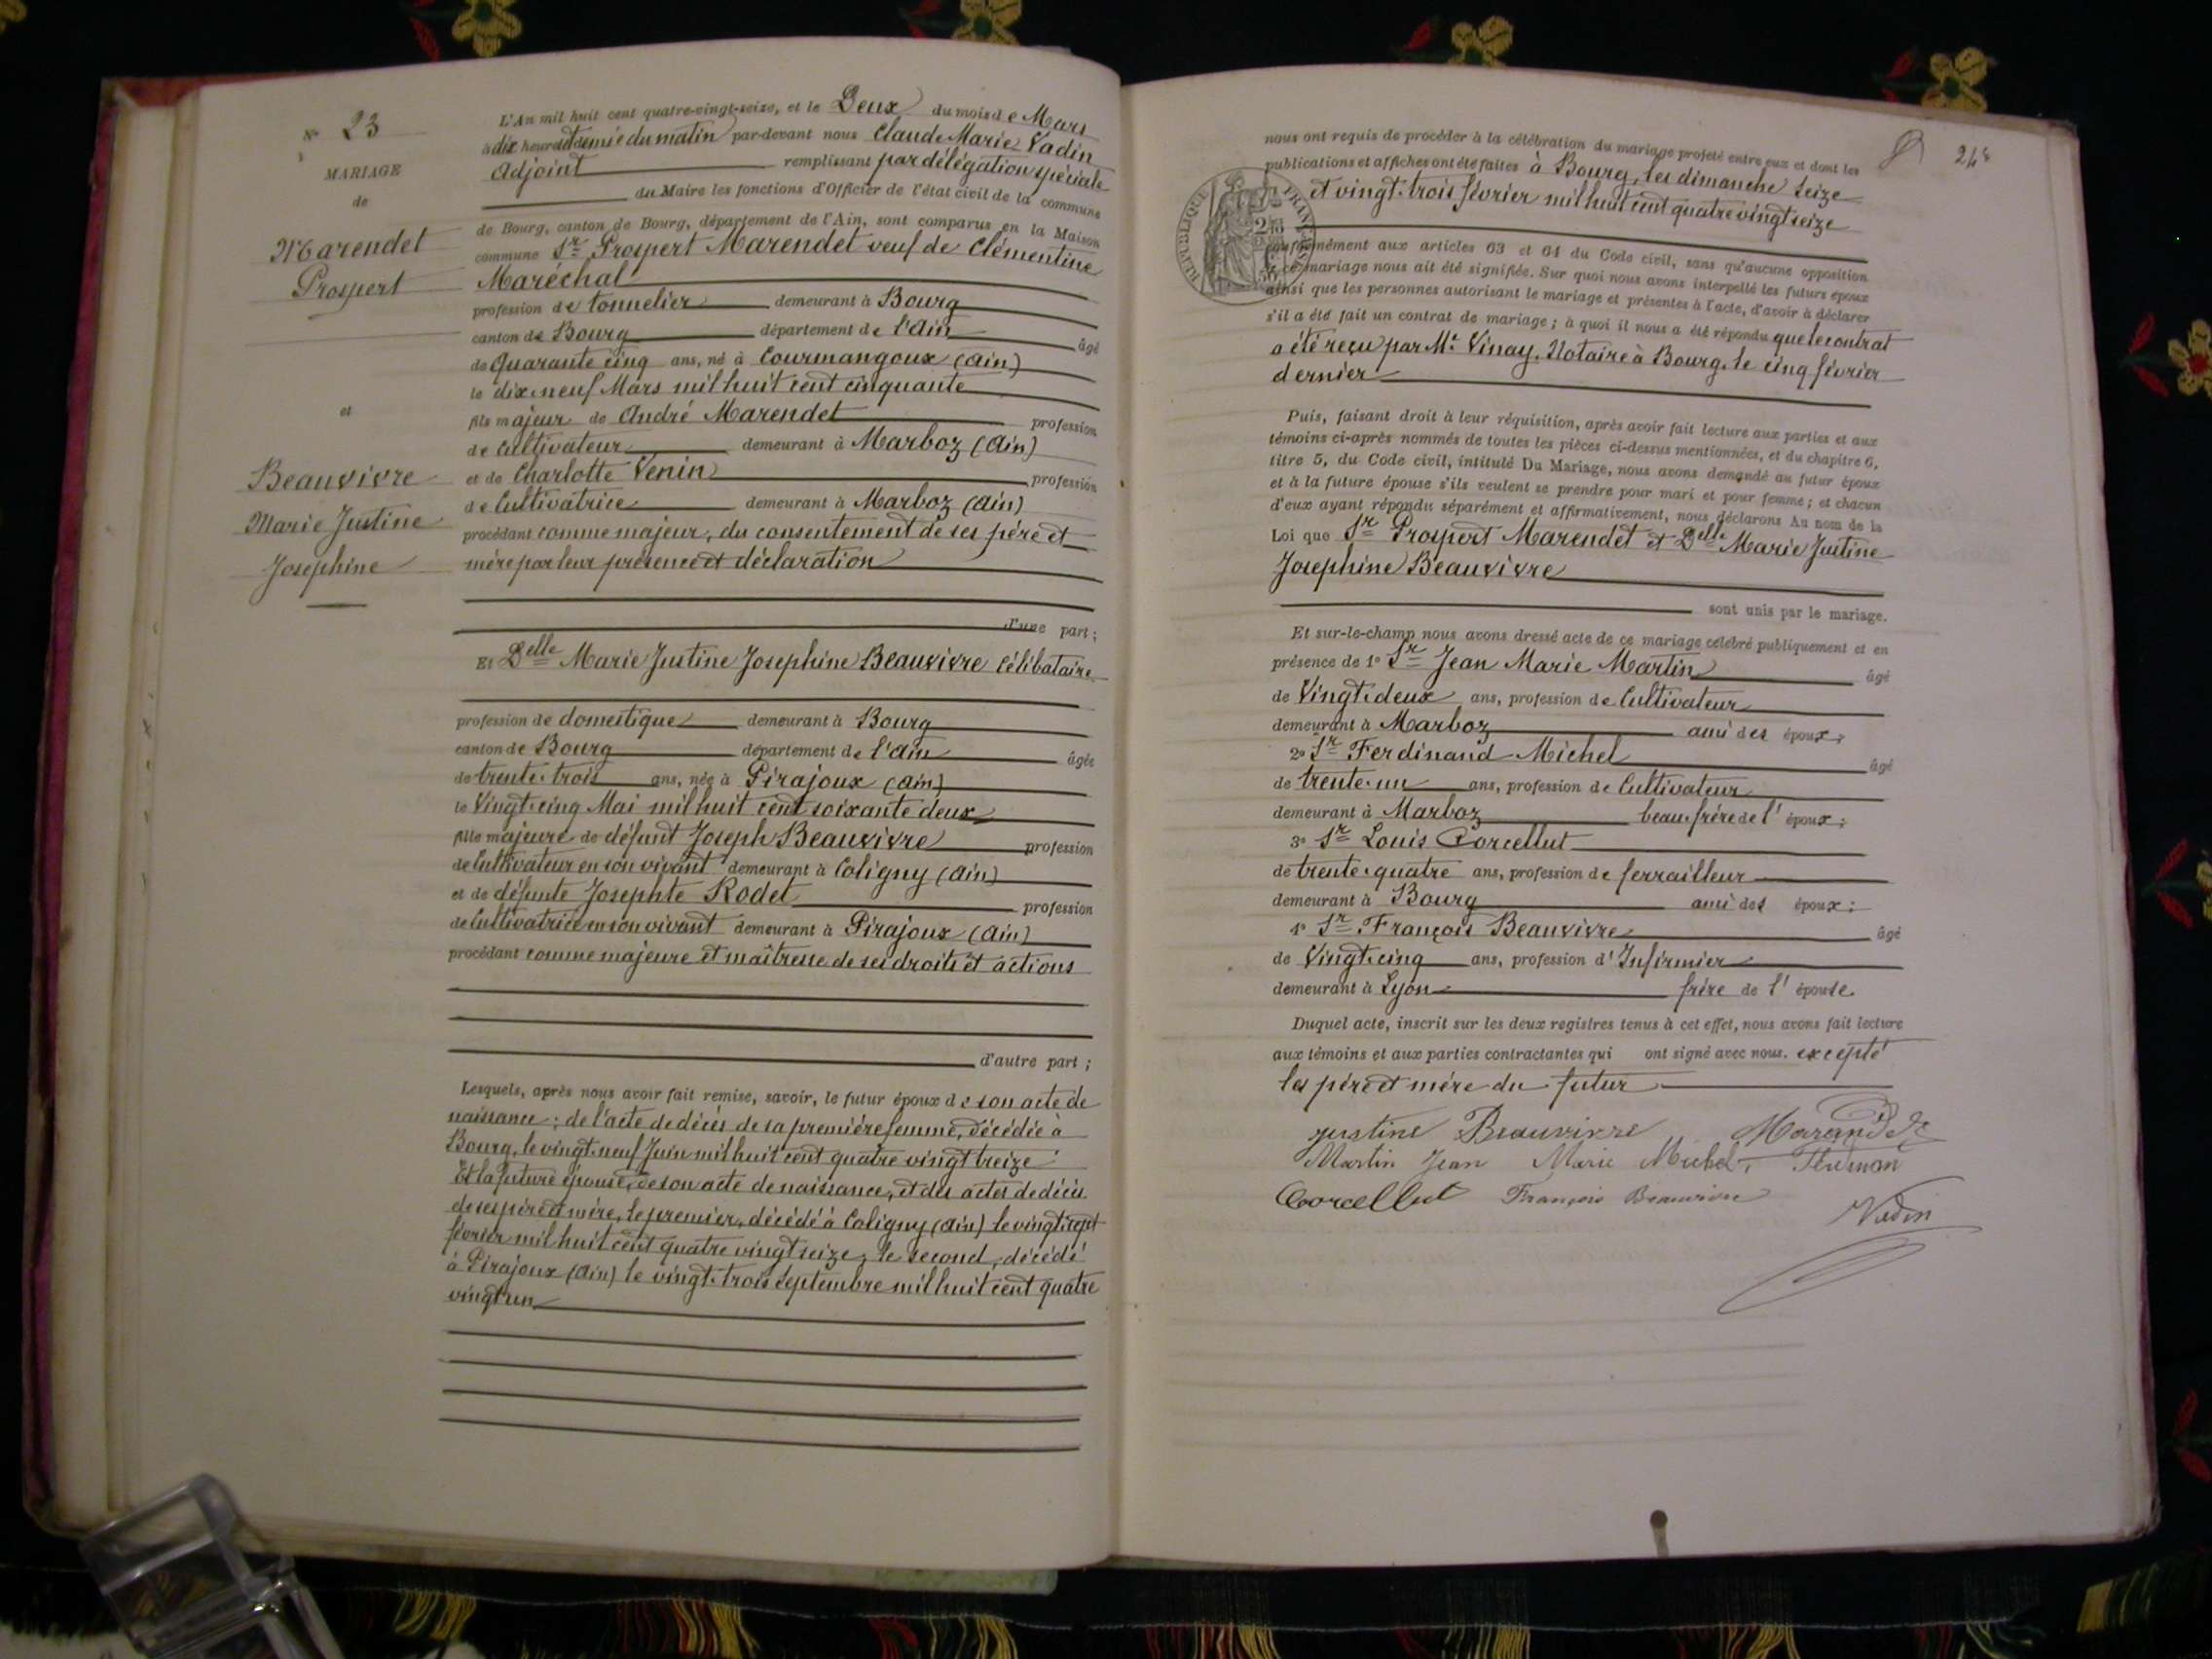 N° 23
MARIAGE
de
Marendet
Prospert
et
Beauvivre
Marie Justine
Josephine
L'An mil huit cent quatre-vingt-seize, et le Deux du mois de Mars
à dix heures et demie du matin par-devant nous Claude Marie Vadin
Adjoint remplissant par délégation spéciale
du Maire les fonctions d'Officier de l'état civil de la commune
de Bourg, canton de Bourg, département de l'Ain, sont comparus en la Maison
commune Sr Prospert Marendet veuf de Clémentine
Maréchal
profession de tonnelier demeurant à Bourg
canton de Bourg département de l'Ain âgé
de Quarante cinq ans, né à Courmangoux (Ain)
le dix-neuf Mars mil huit cent cinquante
fils majeur de André Marendet profession
de Cultivateur demeurant à Marboz (Ain)
et de Charlotte Venin profession
de Cultivatrice demeurant à Marboz (Ain)
procédant comme majeur, du consentement de ses père et
mère par leur présence et déclaration
d'une part ;
Et Delle Marie Justine Josephine Beauvivre Célibataire
profession de domestique demeurant à Bourg
canton de Bourg département de l'Ain âgée
de trente-trois ans, née à Pirajoux (Ain)
le Vingt-cinq Mai mil huit cent soixante deux
fille majeure de défunt Joseph Beauvivre profession
de Cultivateur en son vivant demeurant à Coligny (Ain)
et de défunte Josephte Rodet profession
de Cultivatrice en son vivant demeurant à Pirajoux (Ain)
procédant comme majeure et maîtresse de ses droits et actions
d'autre part ;
Lesquels, après nous avoir fait remise, savoir, le futur époux de son acte de
naissance ; de l'acte de décès de sa première femme, décédée à
Bourg, le vingt-neuf Juin mil huit cent quatre vingt treize
Et la future épouse, de son acte de naissance, et des actes de décès
de ses père et mère, le premier, décédé à Coligny (Ain) le vingt-sept
février mil huit cent quatre vingt seize, le second, décédé
à Pirajoux (Ain) le vingt-trois septembre mil huit cent quatre
vingt un
248
nous ont requis de procéder à la célébration du mariage projeté entre eux et dont les
publications et affiches ont été faites à Bourg, les dimanche seize
et vingt-trois février mil huit cent quatre vingt seize
RÉPUBLIQUE FRANÇAISE
conformément aux articles 63 et 64 du Code civil, sans qu'aucune opposition
à ce mariage nous ait été signifiée. Sur quoi nous avons interpellé les futurs époux
ainsi que les personnes autorisant le mariage et présentes à l'acte, d'avoir à déclarer
s'il a été fait un contrat de mariage ; à quoi il nous a été répondu que le contrat
a été reçu par Me Vinay, Notaire à Bourg, le cinq février
dernier
Puis, faisant droit à leur réquisition, après avoir fait lecture aux parties et aux
témoins ci-après nommés de toutes les pièces ci-dessus mentionnées, et du chapitre 6,
titre 5, du Code civil, intitulé Du Mariage, nous avons demandé au futur époux
et à la future épouse s'ils veulent se prendre pour mari et pour femme ; et chacun
d'eux ayant répondu séparément et affirmativement, nous déclarons Au nom de la
Loi que Sr Prospert Marendet et Delle Marie Justine
Josephine Beauvivre
sont unis par le mariage.
Et sur-le-champ nous avons dressé acte de ce mariage célébré publiquement et en
présence de 1° Sr Jean Marie Martin âgé
de Vingt-deux ans, profession de Cultivateur
demeurant à Marboz ami des époux ;
2° Sr Ferdinand Michel âgé
de trente-un ans, profession de Cultivateur
demeurant à Marboz beau-frère de l'époux ;
3° Sr Louis Corcellut
de trente-quatre ans, profession de ferrailleur
demeurant à Bourg ami des époux ;
4° Sr François Beauvivre âgé
de Vingt-cinq ans, profession d'Infirmier
demeurant à Lyon frère de l'épouse
Duquel acte, inscrit sur les deux registres tenus à cet effet, nous avons fait lecture
aux témoins et aux parties contractantes qui ont signé avec nous. excepté
les père et mère du futur
Justine Beauvivre Marendet
Martin Jean Marie Michel
Corcellut François Beauvivre
Vadin